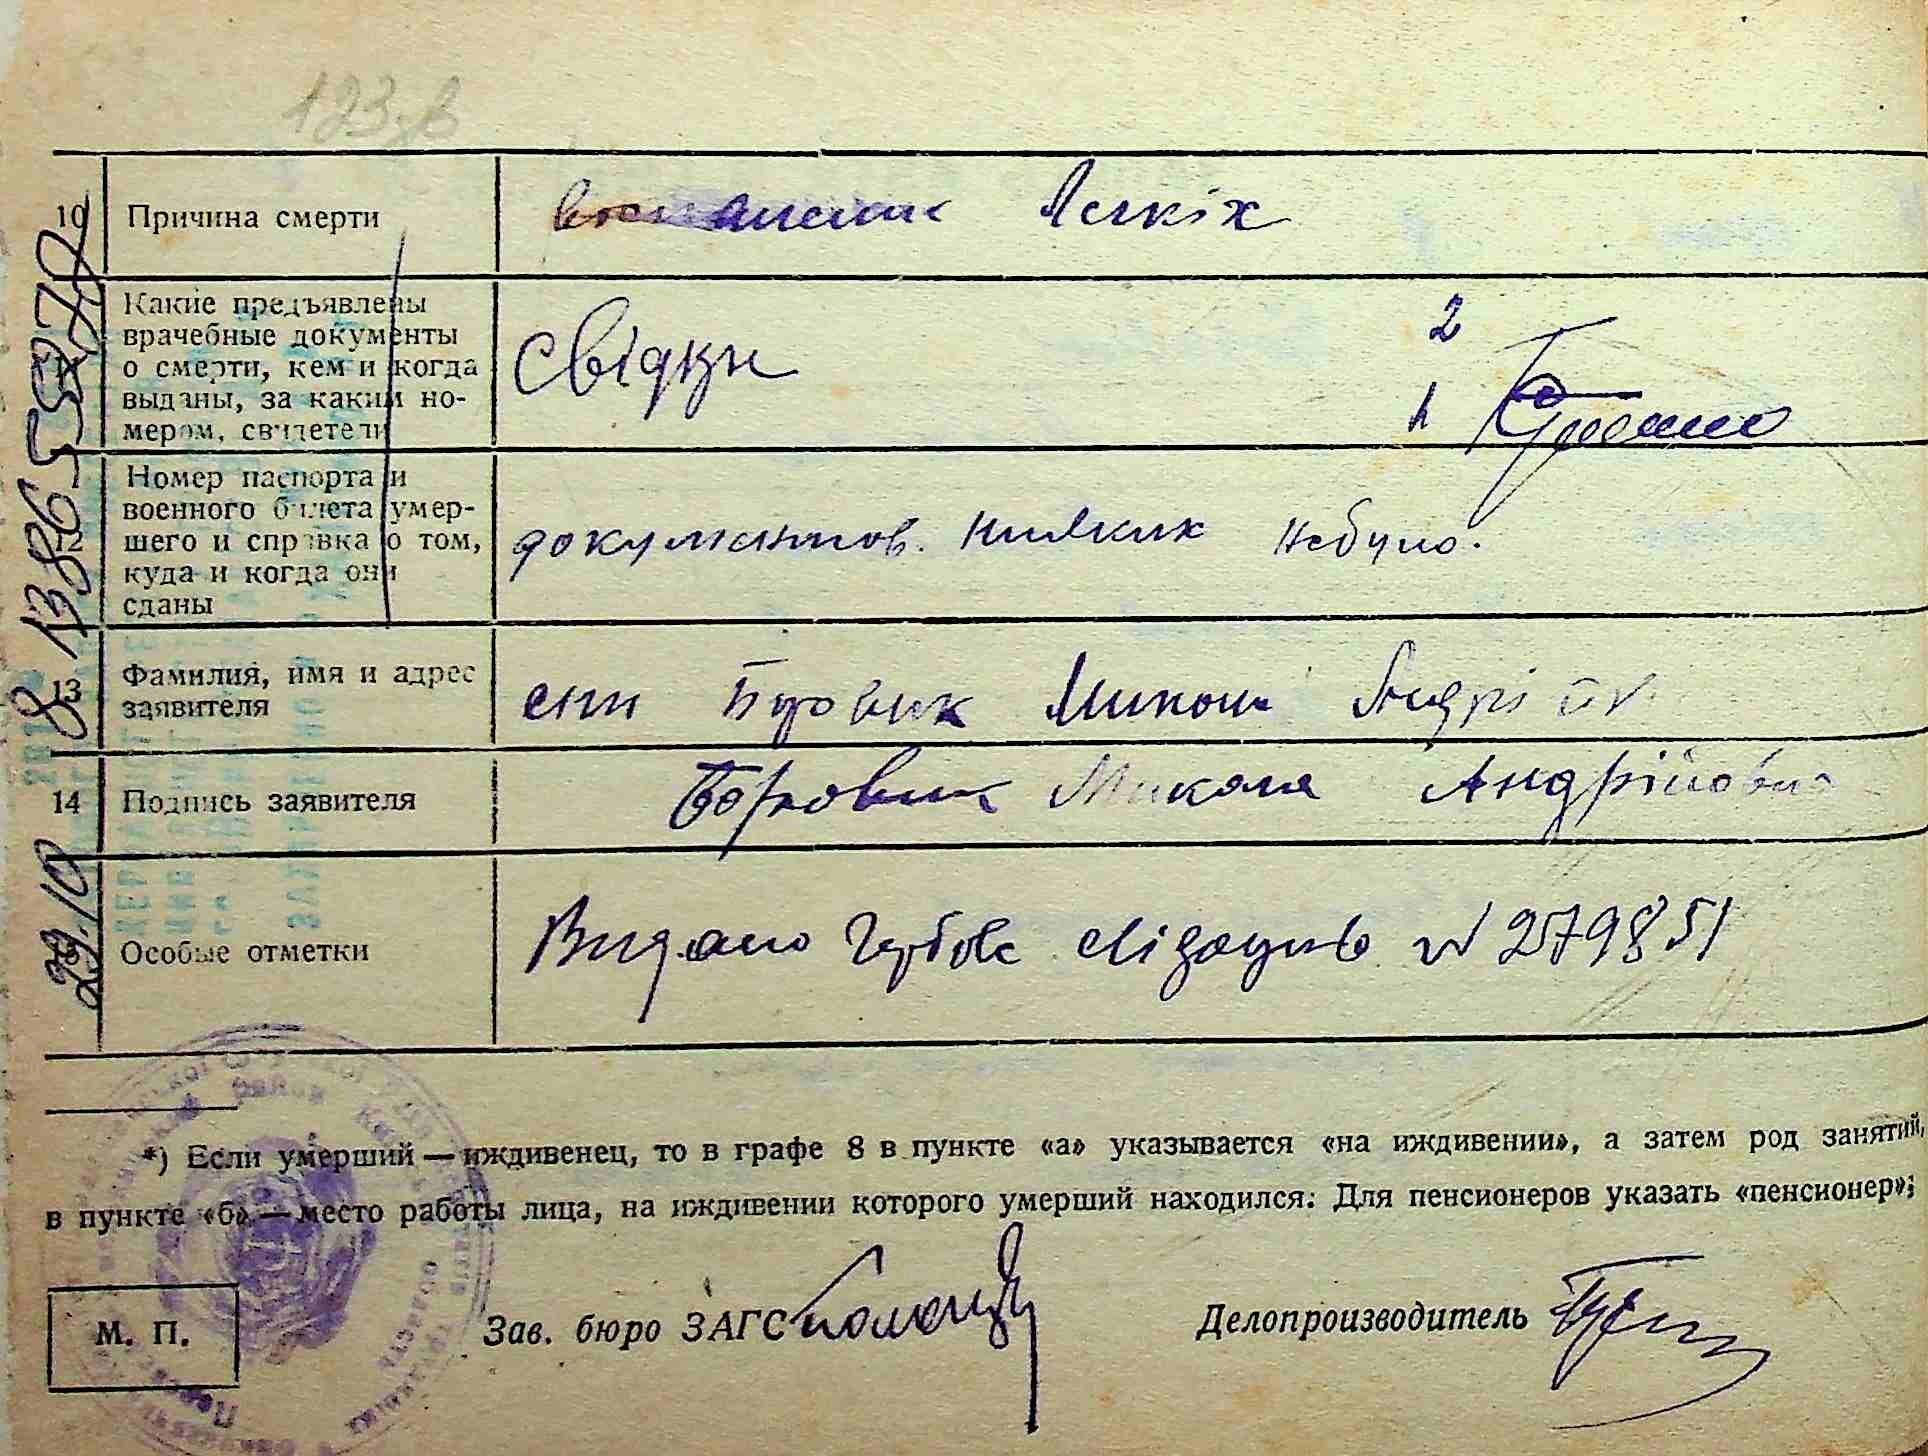 10 Причина смерти воспаление Легкіх
Какие предъявлены
врачебные документы
о смерти, кем и когда
выданы, за каким но-
мером, свидетели
свідки
2
1
Номер паспорта и
военного билета умер-
12 шего и справка о том,
куда и когда они
сданы
документов. нияких небуло.
13 Фамилия, имя и адрес
заявителя
син Боровик Микола
14 Подпись заявителя Боровик Микола Андрійович
Особые отметки Видано Гербове свідоцтво N 2579851
*) Если умерший — иждивенец, то в графе 8 в пункте «а» указывается «на иждивении», а затем род занятий,
в пункте «б» — место работы лица, на иждивении которого умерший находился. Для пенсионеров указать «пенсионер»;
М. П.
Зав. бюро ЗАГС
Делопроизводитель
29.10